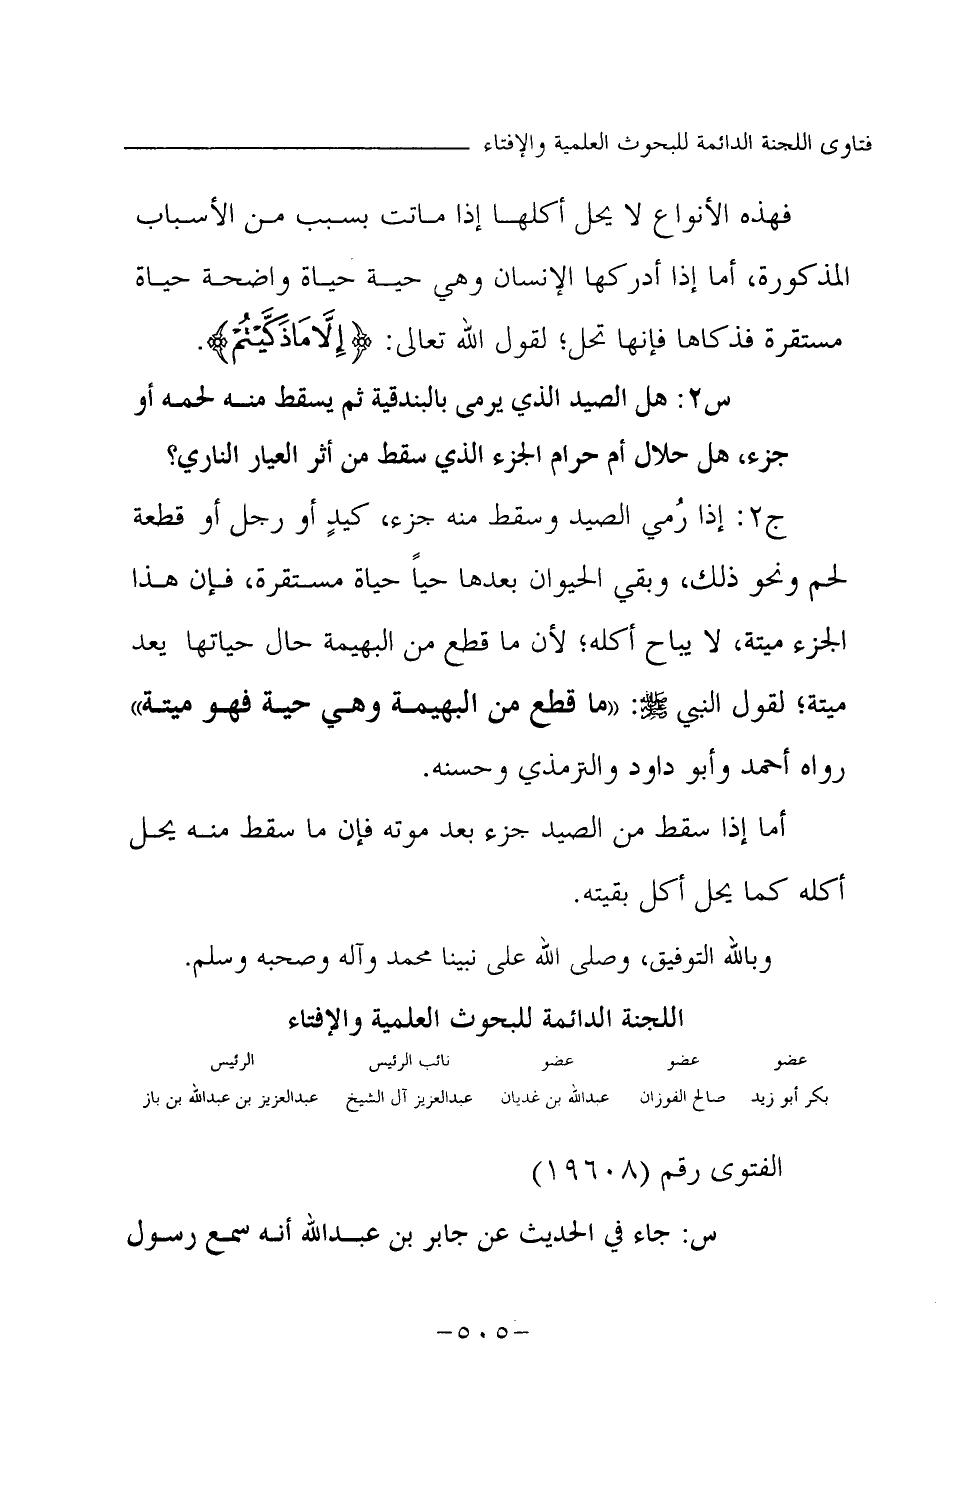 فتاوى اللجنة الدائمة للبحوث العلمية والإفتاء
فهذه الأنواع لا يحل أكلها إذا ماتت بسبب من الأسباب
المذكورة، أما إذا أدركها الإنسان وهي حية حياة واضحة حياة
مستقرة فذكاها فإنها تحل؛ لقول الله تعالى: ﴿إِلَّا مَا ذَكَّيْتُمْ﴾.
س٢: هل الصيد الذي يرمى بالبندقية ثم يسقط منه لحمه أو
جزء، هل حلال أم حرام الجزء الذي سقط من أثر العيار الناري؟
ج٢: إذا رُمي الصيد وسقط منه جزء، كيدٍ أو رجل أو قطعة
لحم ونحو ذلك، وبقي الحيوان بعدها حياً حياة مستقرة، فإن هذا
الجزء ميتة، لا يباح أكله؛ لأن ما قطع من البهيمة حال حياتها يعد
ميتة؛ لقول النبي ﷺ: «ما قطع من البهيمة وهي حية فهو ميتة»
رواه أحمد وأبو داود والترمذي وحسنه.
أما إذا سقط من الصيد جزء بعد موته فإن ما سقط منه يحل
أكله كما يحل أكل بقيته.
وبالله التوفيق، وصلى الله على نبينا محمد وآله وصحبه وسلم.
اللجنة الدائمة للبحوث العلمية والإفتاء
عضو عضو عضو نائب الرئيس الرئيس
بكر أبو زيد صالح الفوزان عبدالله بن غديان عبدالعزيز آل الشيخ عبدالعزيز بن عبدالله بن باز
الفتوى رقم (١٩٦٠٨)
س: جاء في الحديث عن جابر بن عبدالله أنه سمع رسول
-٥٠٥-